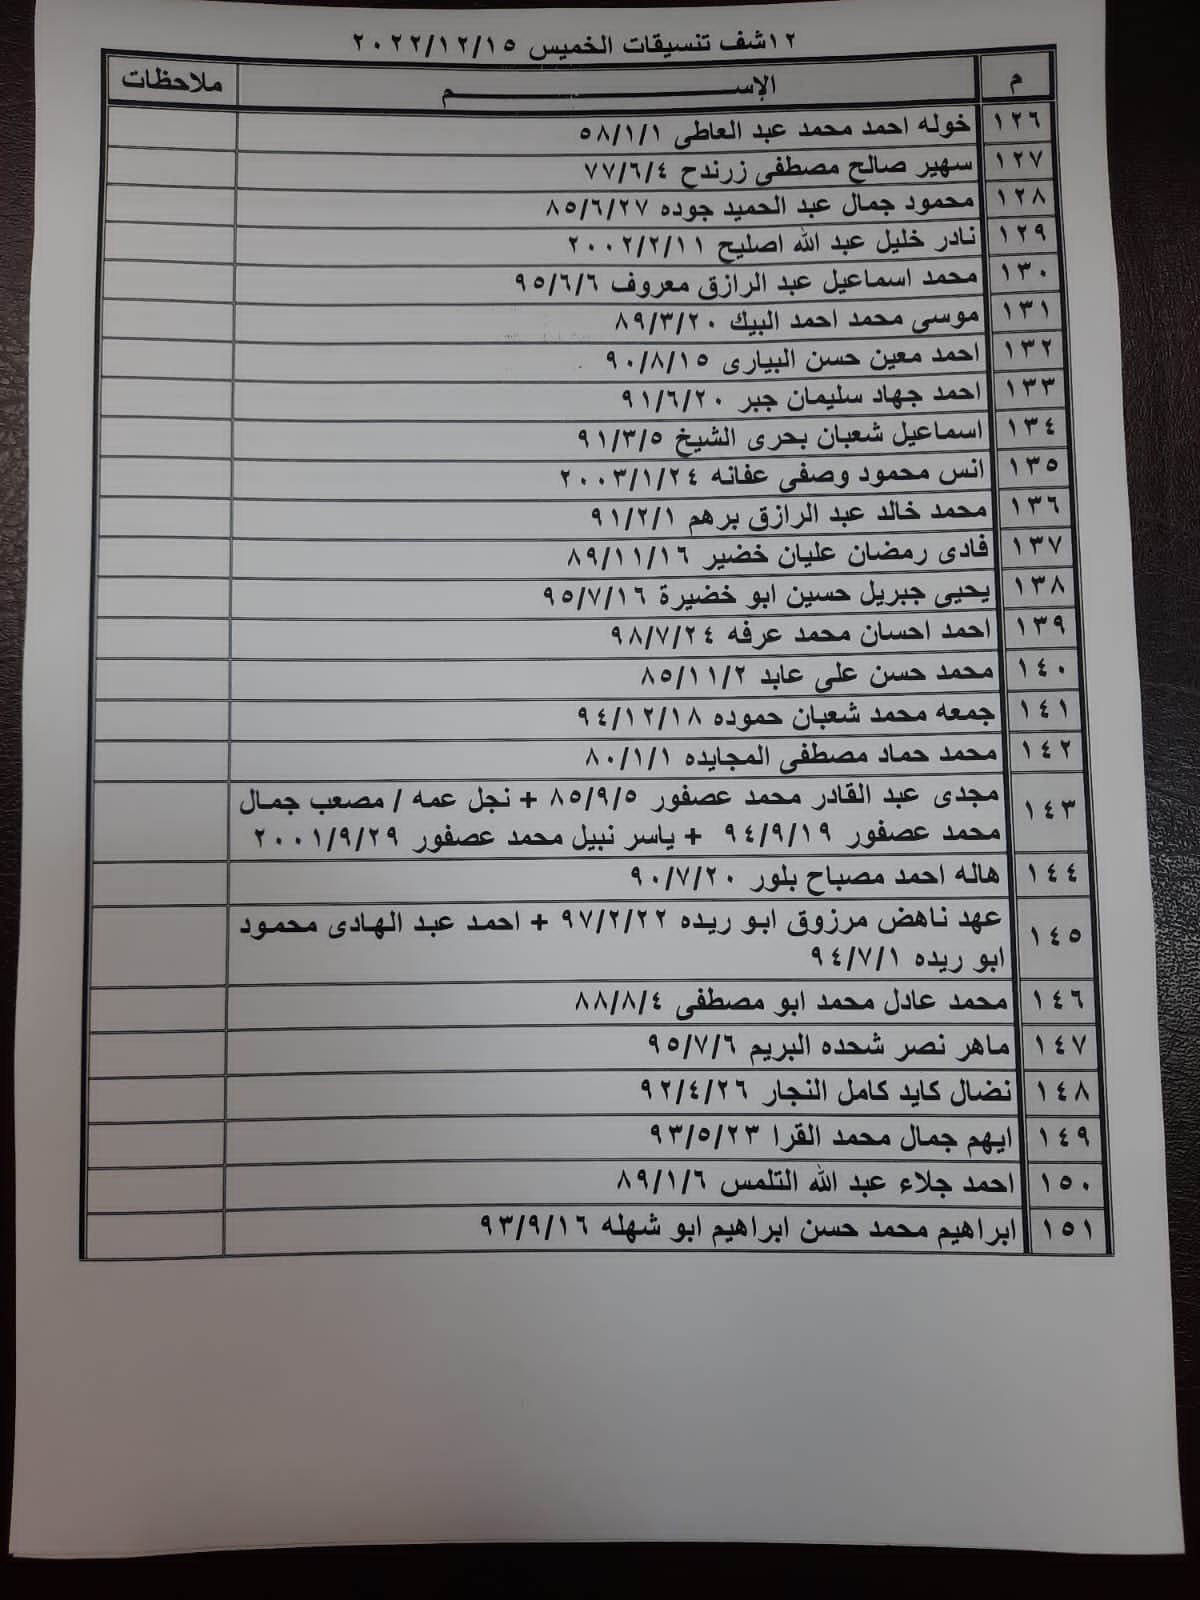 ١٢شف تنسيقات الخميس ٢٠٢٢/١٢/١٥
م الإســـــــم ملاحظات
١٢٦ خوله احمد محمد عبد العاطى ٥٨/١/١
١٢٧ سهير صالح مصطفى زرندح ٧٧/٦/٤
١٢٨ محمود جمال عبد الحميد جوده ٨٥/٦/٢٧
١٢٩ نادر خليل عبد الله اصليح ٢٠٠٢/٢/١١
١٣٠ محمد اسماعيل عبد الرازق معروف ٩٥/٦/٦
١٣١ موسى محمد احمد البيك ٨٩/٣/٢٠
١٣٢ احمد معين حسن البيارى ٩٠/٨/١٥
١٣٣ احمد جهاد سليمان جبر ٩١/٦/٢٠
١٣٤ اسماعيل شعبان بحرى الشيخ ٩١/٣/٥
١٣٥ انس محمود وصفى عفانه ٢٠٠٣/١/٢٤
١٣٦ محمد خالد عبد الرازق برهم ٩١/٢/١
١٣٧ فادى رمضان عليان خضير ٨٩/١١/١٦
١٣٨ يحيى جبريل حسين ابو خضيرة ٩٥/٧/١٦
١٣٩ احمد احسان محمد عرفه ٩٨/٧/٢٤
١٤٠ محمد حسن على عابد ٨٥/١١/٢
١٤١ جمعه محمد شعبان حموده ٩٤/١٢/١٨
١٤٢ محمد حماد مصطفى المجايده ٨٠/١/١
١٤٣ مجدى عبد القادر محمد عصفور ٨٥/٩/٥ + نجل عمه / مصعب جمال
محمد عصفور ٩٤/٩/١٩ + ياسر نبيل محمد عصفور ٢٠٠١/٩/٢٩
١٤٤ هاله احمد مصباح بلور ٩٠/٧/٢٠
١٤٥ عهد ناهض مرزوق ابو ريده ٩٧/٢/٢٢ + احمد عبد الهادى محمود
ابو ريده ٩٤/٧/١
١٤٦ محمد عادل محمد ابو مصطفى ٨٨/٨/٤
١٤٧ ماهر نصر شحده البريم ٩٥/٧/٦
١٤٨ نضال كايد كامل النجار ٩٢/٤/٢٦
١٤٩ ايهم جمال محمد القرا ٩٣/٥/٢٣
١٥٠ احمد جلاء عبد الله التلمس ٨٩/١/٦
١٥١ ابراهيم محمد حسن ابراهيم ابو شهله ٩٣/٩/١٦